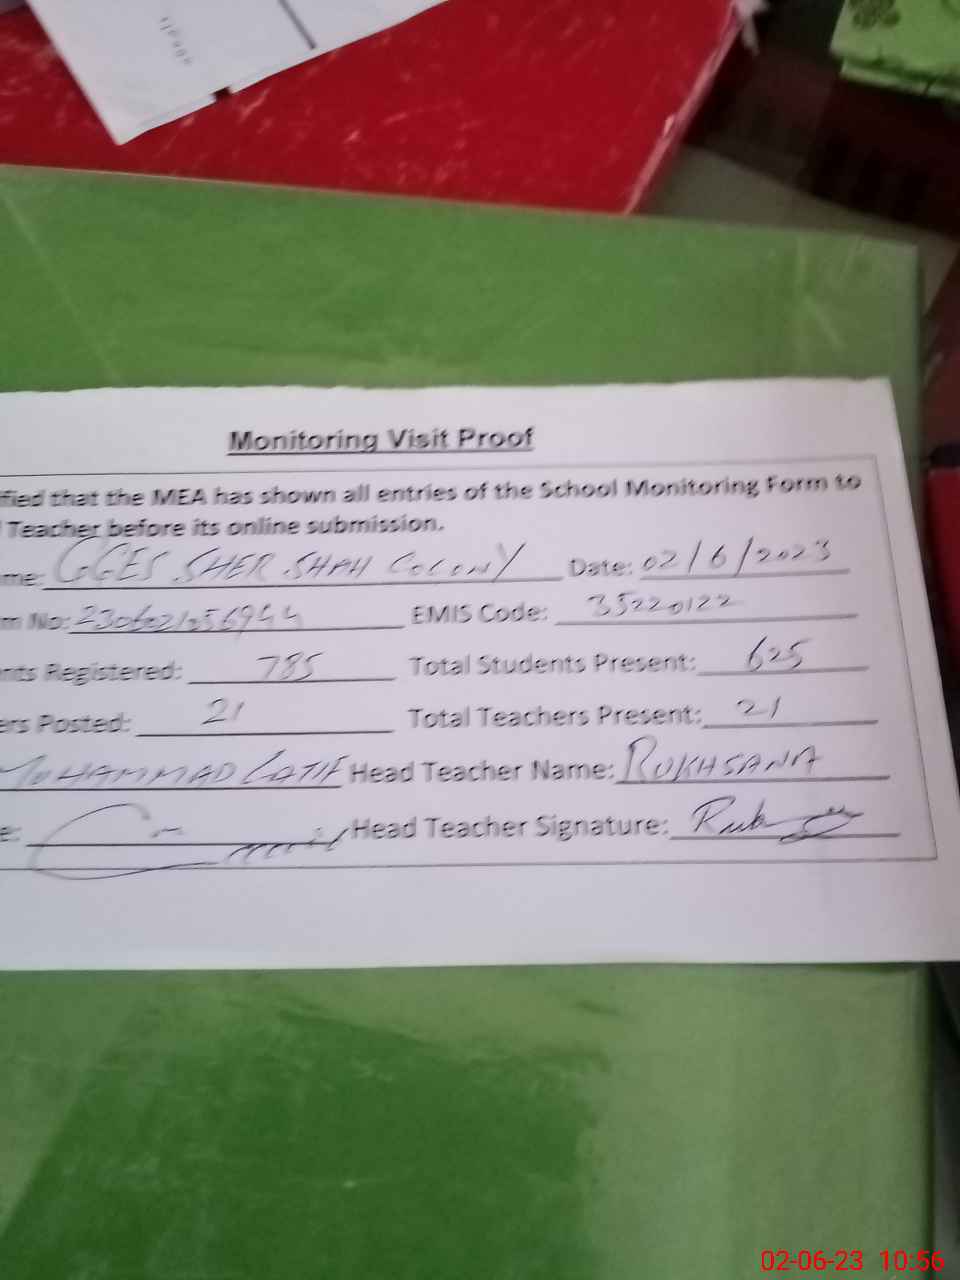 Monitoring Visit Proof
fied that the MEA has shown all entries of the School Monitoring Form to
Teacher before its online submission.
me: GGES SHER SHAH COLONY Date: 02/6/2023
m No: EMIS Code: 35220122
nts Registered: 785 Total Students Present: 625
ers Posted: 21 Total Teachers Present: 21
MUHAMMAD LATIF Head Teacher Name: RUKHSANA
e: Head Teacher Signature:
02-06-23 10:56